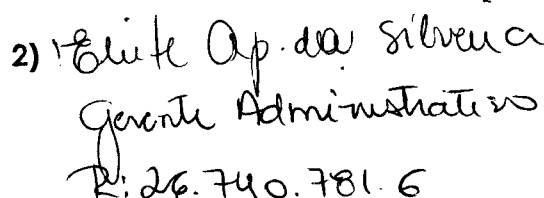 2) Elite Ap. da Silveira
Gerente Administrativo
R: 26.740.781.6